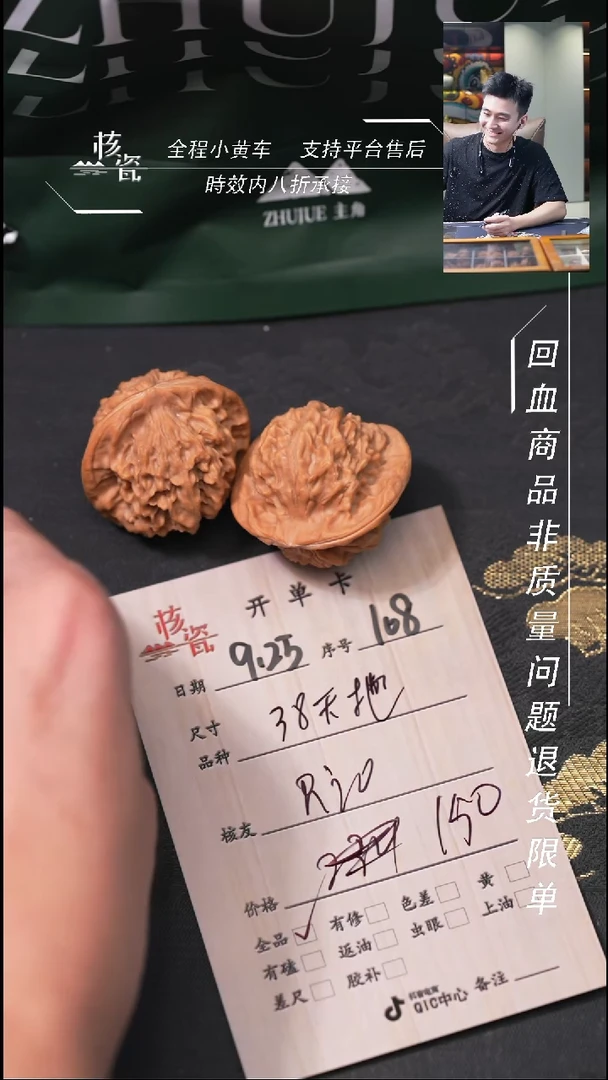 ZHUJUE
核瓷
全程小黄车 支持平台售后
時效内八折承接
ZHUJUE 主角
回血商品非质量问题退货限单
开单卡
核瓷
日期 9.25 序号 168
尺寸
品种 38天地
核友 Rio
价格 150
全品 ✓ 有修 色差 黄
有磕 返油 虫眼 上油
差尺 胶补
抖音电商
QIC中心 备注